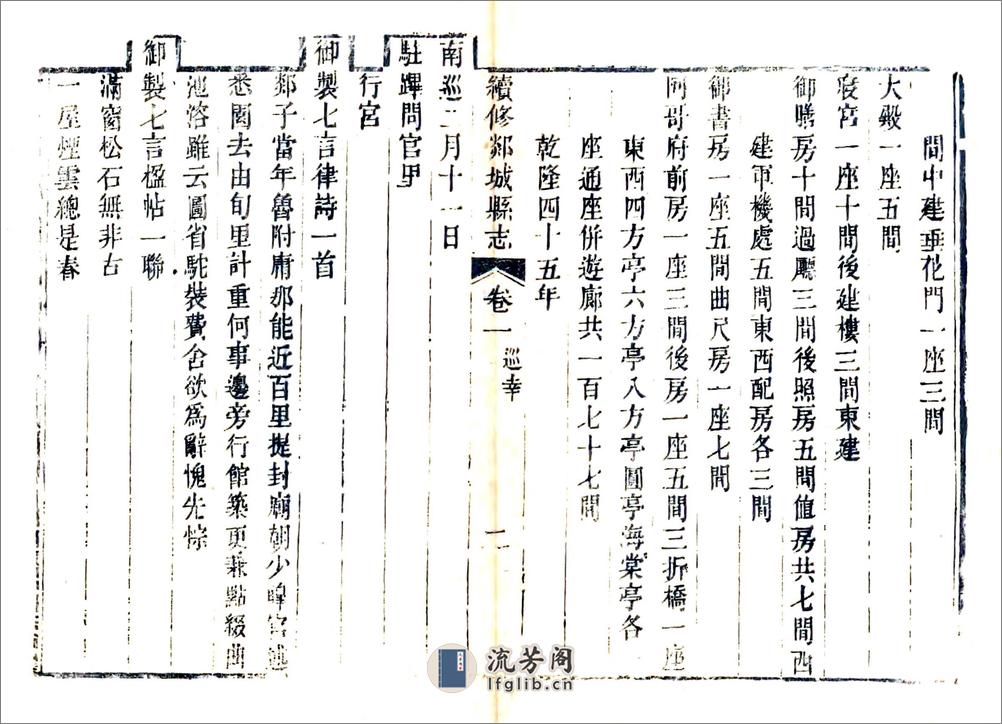 間中建垂花門一座三間
大殿一座五間
寢宮一座十間後建樓三間東建
御膳房十間過廳三間後照房五間值房共七間西
建軍機處五間東西配房各三間
御書房一座五間曲尺房一座七間
阿哥府前房一座三間後房一座五間三折橋一座
東西四方亭六方亭八方亭圓亭海棠亭各
座通座併遊廊共一百七十七間
乾隆四十五年
續修郯城縣志 卷一 巡幸 二
南巡二月十一日
駐蹕問官里
行宮
御製七言律詩一首
郯子當年魯附庸那能近百里提封廟朝少皥官述
悉園去由旬里計重何事邊旁行館築更兼點綴曲
池溶雖云圖省駝裝費舍欲爲辭愧先悰
御製七言楹帖一聯
滿窗松石無非古
一屋煙雲總是春
流芳阁
lfglib.cn